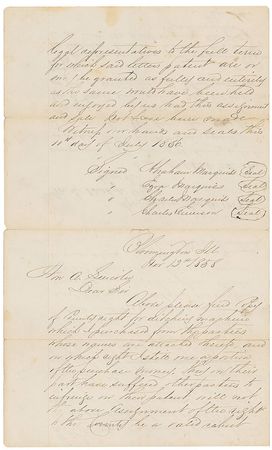 legal representatives to the full term
for which said letters patent are or
may be granted as fully and entirely
as the same would have been held
and enjoyed by us had this assignment
and sale not been made
Witness our hands and seals this
11th day of July 1856
Signed Abraham (Seal)
" (Seal)
" Charles (Seal)
" Charles (Seal)
Bloomington Ill
Nov 13th 1858
Wm
Dear Sir
Above please find Copy
of right for machine
which I purchased from the parties
whose names are attached hereto and
in which right I a portion
of the purchase money. They on their
part have suffered other parties to
infringe on their patent will not
the above assignment of the right
to the County be a valid